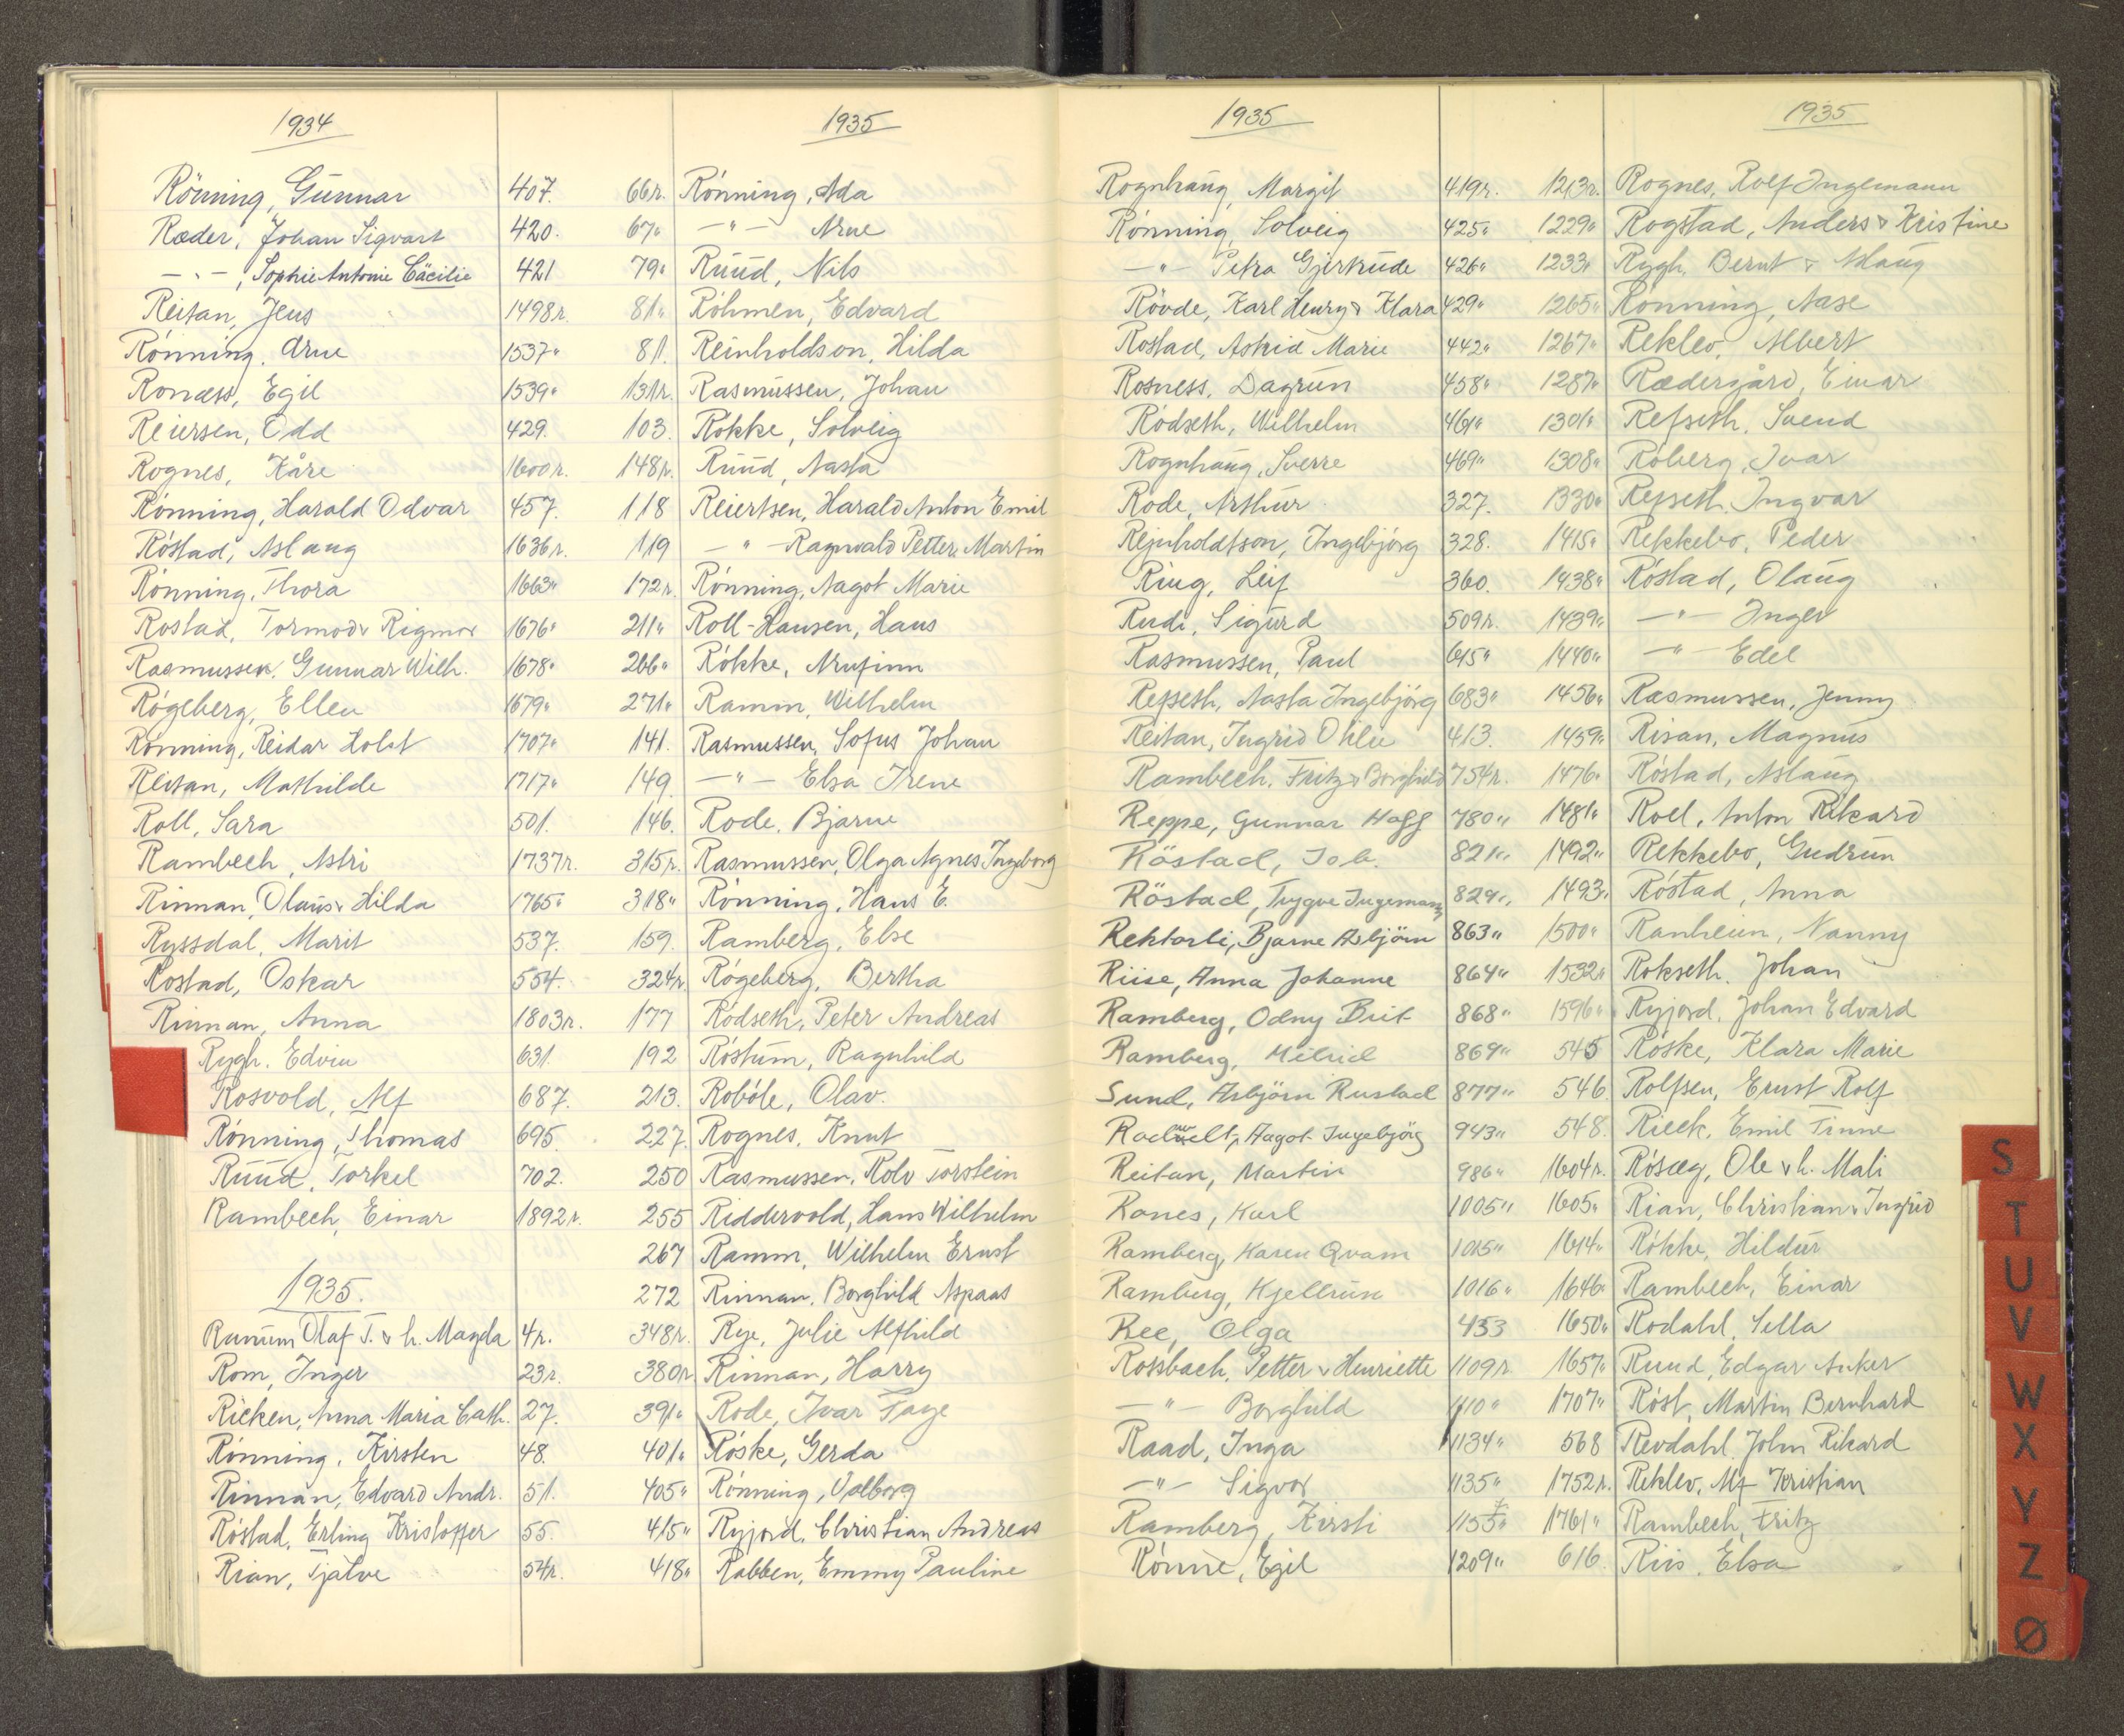 1934
Rönning, Gunnar 407.
Ræder, Johan Sigvart 420.
—"—, Sophie Antonie Cäcilie 421
Reitan, Jens 1498r.
Rónning, Arne 1537"
Ronæss, Egil 1539"
Reiersen, Odd 429.
Rognes, Kåre 1600r.
Rónning, Harald Odvar 457.
Róstad, Aslaug 1636r.
Rónning, Thora 1663"
Rostad, Tormod & Rigmor 1676"
Rasmussen, Gunnar Wilh. 1678"
Rógeberg, Ellen 1679"
Rónning, Reidar Holst 1707"
Reitan, Mathilde 1717"
Roll, Sara 501.
Rambech, Astri 1737r.
Rinnan, Olaus & Hilda 1765"
Ryssdal, Marit 537.
Rostad, Oskar 554.
Rinnan, Anna 1803r.
Rygh, Edvin 631
Rosvold, Alf 687.
Rónning, Thomas 695
Ruud, Torkel 702.
Rambech, Einar 1892r.
1935.
Olaf T. & h. Magda 4r.
Rom, Inger 23r.
Ricken, Anna Maria Cath. 27.
Rónning, Kirsten 48.
Rinnan, Edvard Andr. 51.
Róstad, Erling Kristoffer 55.
Rian, Tjalve 54r.
1935
66r. Rónning, Ada
67" —"— Arne
79" Ruud, Nils
81" Röhmen, Edvard
81. Reinholdson, Hilda
131r. Rasmussen, Johan
103. Rókke, Solveig
148r. Ruud, Aasta
118 Reiertsen, Harald Anton Emil
119 —"— Ragnvald Petter Martin
172r. Rónning, Aagot Marie
211" Roll-Hansen, Hans
266" Rókke, Arnfinn
271" Ramm, Wilhelm
141. Rasmussen, Sofus Johan
149. —"— Elsa Irene
146. Rode, Bjarne
315r. Rasmussen, Olga Agnes Ingeborg
318" Rónning, Hans E.
159. Ramberg, Else
324r. Rógeberg, Bertha
177 Ródseth, Peter Andreas
192 Róstum, Ragnhild
213. Robóle, Olav.
227. Rognes, Knut
250 Rasmussen, Rolv Torstein
255 Riddervold, Hans Wilhelm
267 Ramm, Wilhelm Ernst
272 Rinnan, Borghild Aspaas
348r. Rye, Julie Alfhild
380r Rinnan, Harry
391" Rode, Ivar Faye
401" Róske, Gerda
405" Rónning, Valborg
415" Ryjord, Christian Andreas
418" Rabben, Emmy Pauline
1935
Rognhaug, Margit 419r.
Rónning, Solveig 425"
—"— Petra Gjertrude 426"
Róvde, Karl Henry & Klara 429"
Rostad, Astrid Marie 442"
Rosness, Dagrun 458"
Ródseth, Wilhelm 461"
Rognhaug, Sverre 469"
Rode, Arthur 327.
Rejnholdtson, Ingebjórg 328.
Ring, Leif 360.
Rudi, Sigurd 509r.
Rasmussen, Paul 615"
Refseth, Aasta Ingebjórg 683"
Reitan, Ingrid Otilie 413.
Rambech, Fritz & Borghild 754r.
Reppe, Gunnar Hoff 780"
Röstad, Job. 821"
Röstad, Trygve Ingemann 829"
Rektorli, Bjarne Asbjörn 863"
Riise, Anna Johanne 864"
Ramberg, Odny Brit 868"
Ramberg, 869"
Sund, Asbjörn Rustad 877"
Aagot Ingebjörg 943"
Reitan, Martin 986"
Ranes, Karl 1005"
Ramberg, Karen Qvam 1015"
Ramberg, Kjellrun 1016"
Ree, Olga 433
Rossbach, Petter & Henriette 1109r
—"— Borghild 1110"
Raad, Inga 1134"
—"— Sigvor 1135"
Ramberg, Kirsti 1155"
Rónne, Egil 1209"
1935
1213r. Rognes, Rolf Ingemann
1229" Rogstad, Anders & Kristine
1233" Rygh, Bernt & Aslaug
1265" Rónning, Aase
1267" Reklev, Albert
1287" Rædergård, Einar
1301" Refseth, Svend
1308" Róberg, Ivar
1330" Refseth, Ingvar
1415" Rekkebo, Peder
1438" Róstad, Olaug
1439" —"— Inger
1440" —"— Edel
1456" Rasmussen, Jenny
1459" Risan, Magnus
1476" Róstad, Aslaug
1481" Roel, Anton Rikard
1492" Rekkebo, Gudrun
1493" Róstad, Anna
1500" Ranheim, Nanny
1532" Rokseth, Johan
1596" Ryjord, Johan Edvard
545 Róske, Klara Marie
546 Rolfsen, Ernst Rolf
548. Rieck, Emil Finne
1604r. Rósæg, Ole & h. Mali
1605" Rian, Christian & Ingrid
1614" Rókke, Hildur
1646" Rambech, Einar
1650" Rodahl, Sella
1657" Ruud, Edgar Anker
1707" Róst, Martin Bernhard
568 Revdahl, John Rikard
1752r. Reklev, Alf Kristian
1761" Rambech, Fritz
616. Riis, Elsa
S
T
U
V
W
X
Y
Z
Ø